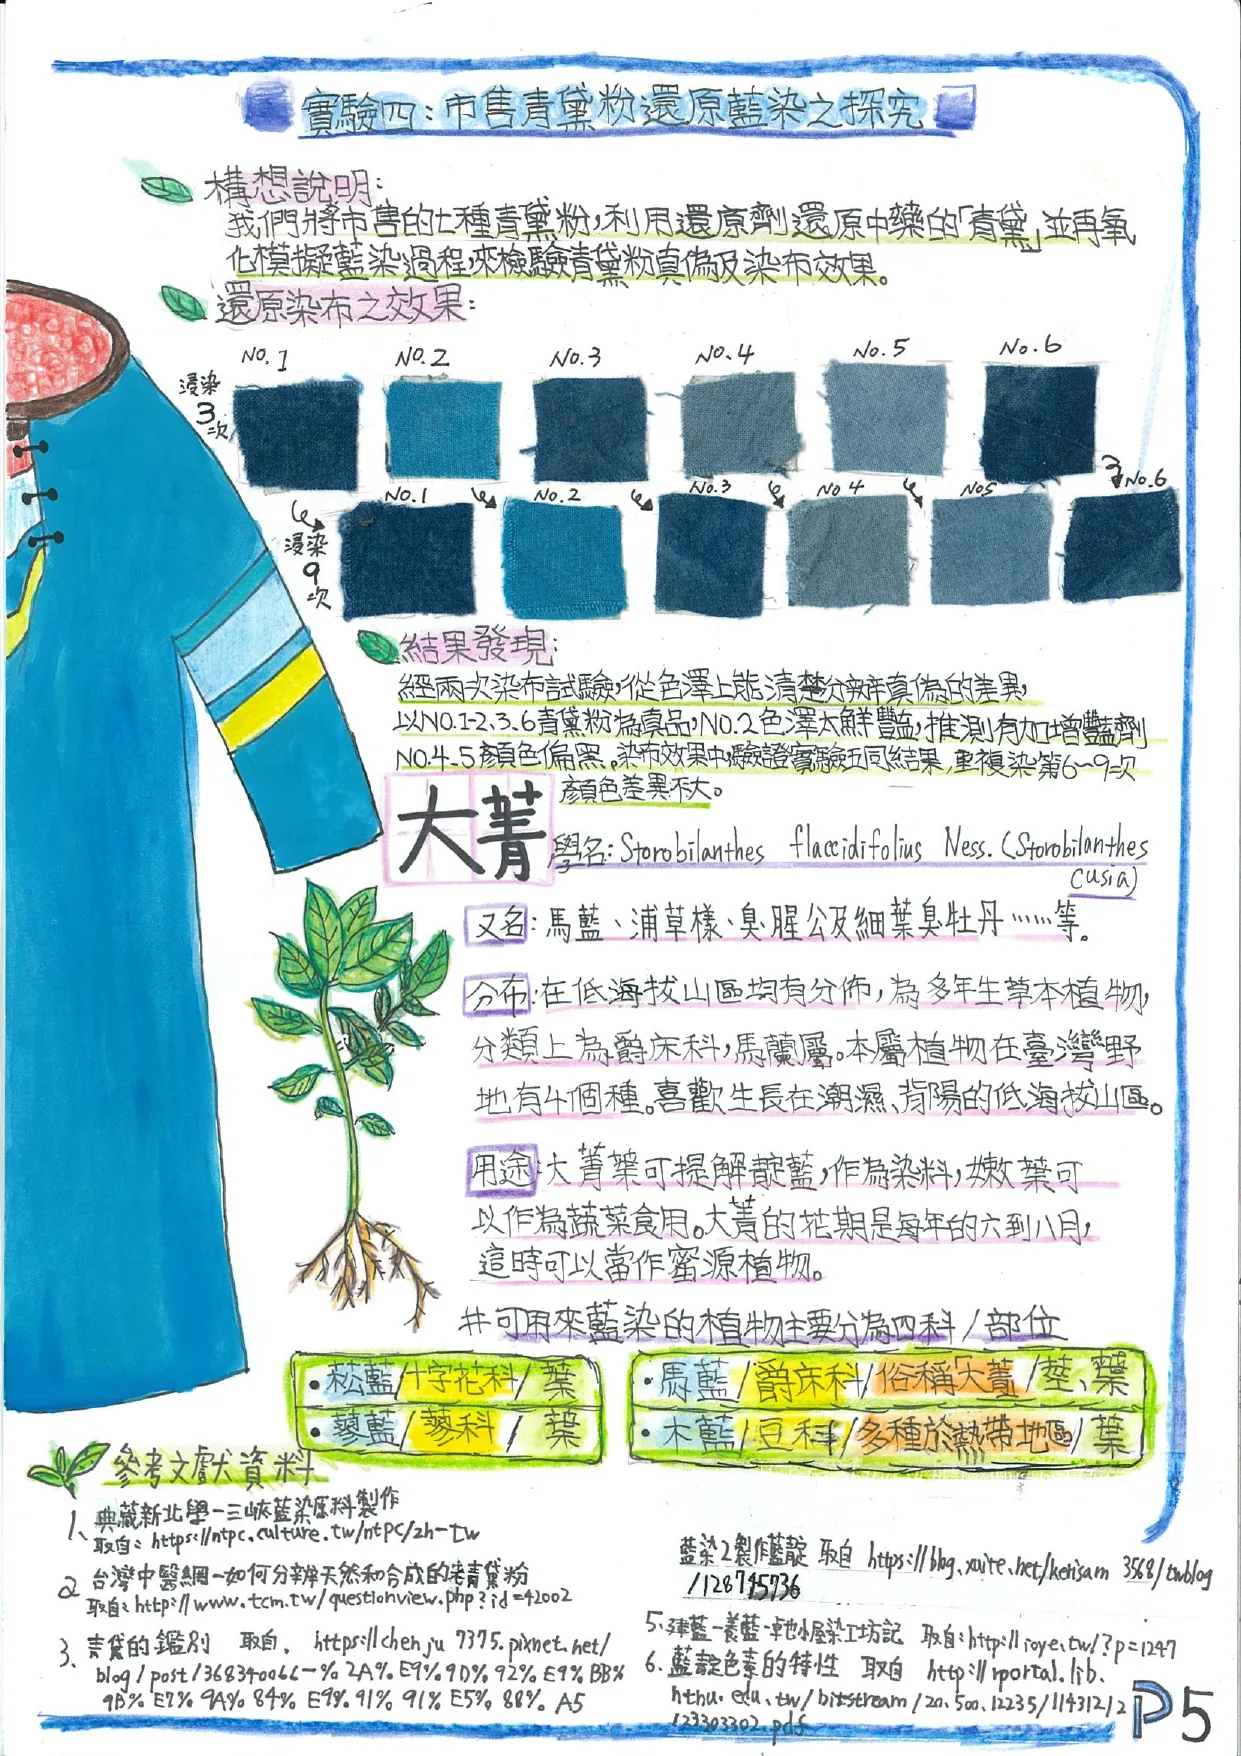 實驗四：市售青黛粉還原藍染之探究
構想說明：
我們將市售的七種青黛粉，利用還原劑還原中藥的「青黛」並再氧
化模擬藍染過程，來檢驗青黛粉真偽及染布效果。
還原染布之效果：
NO.1 NO.2 NO.3 NO.4 NO.5 NO.6
浸染
3
次
NO.1 NO.2 NO.3 NO 4 NO5 NO.6
浸染
9
次
結果發現：
經兩次染布試驗，從色澤上能清楚分辨真偽的差異，
以NO.1-2.3.6青黛粉為真品，NO.2色澤太鮮豔，推測有加增豔劑
NO.4-5顏色偏黑。染布效果中，驗證實驗五同結果，重複染第6~9次
顏色差異不大。
大菁
學名：Storobilanthes flaccidifolius Ness. (Storobilanthes
cusia)
又名：馬藍、浦草樣、臭腥公及細葉臭牡丹……等。
分布：在低海拔山區均有分佈，為多年生草本植物，
分類上為爵床科，馬蘭屬。本屬植物在臺灣野
地有4個種。喜歡生長在潮濕、背陽的低海拔山區。
用途：大菁葉可提解靛藍，作為染料，嫩葉可
以作為蔬菜食用。大菁的花期是每年的六到八月，
這時可以當作蜜源植物。
#可用來藍染的植物主要分為四科/部位
•菘藍/十字花科/葉
•蓼藍/蓼科/葉
•馬藍/爵床科/俗稱「大菁」/莖、葉
•木藍/豆科/多種於熱帶地區/葉
參考文獻資料
1、典藏新北學-三峽藍染原料製作
取自：https://ntpc.culture.tw/ntpc/zh-tw
2 台灣中醫網-如何分辨天然和合成的青黛粉
取自：http://www.tcm.tw/questionview.php?id=42002
3、青黛的鑑別 取自. https://chenju7375.pixnet.net/
blog/post/368340066-%2A%E9%9D%92%E9%BB%
9B%E7%9A%84%E9%91%91%E5%88%A5
藍染2製作藍靛 取自 https://blog.xuite.net/kerisam 3568/twblog
/128745736
5、建藍-養藍-卓也小屋染工坊記 取自：http://joye.tw/?p=1247
6、藍靛色素的特性 取自 http://rportal.lib.
ntnu.edu.tw/bitstream/20.500.12235/114312/2
123303302.pdf
P5